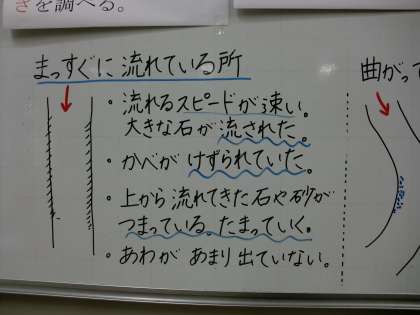 さを調べる。
まっすぐに流れている所
・流れるスピードが速い。
大きな石が流された。
・かべがけずられていた。
・上から流れてきた石や砂が
つまっている。たまっていく。
・あわがあまり出ていない。
曲がって